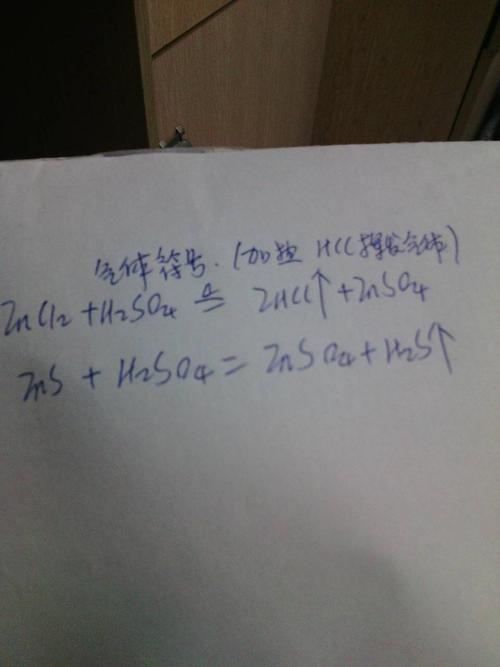 气体符号.(加热 HCl挥发气体)
ZnCl2+H2SO4 ≜ 2HCl↑+ZnSO4
ZnS + H2SO4 = ZnSO4+H2S↑